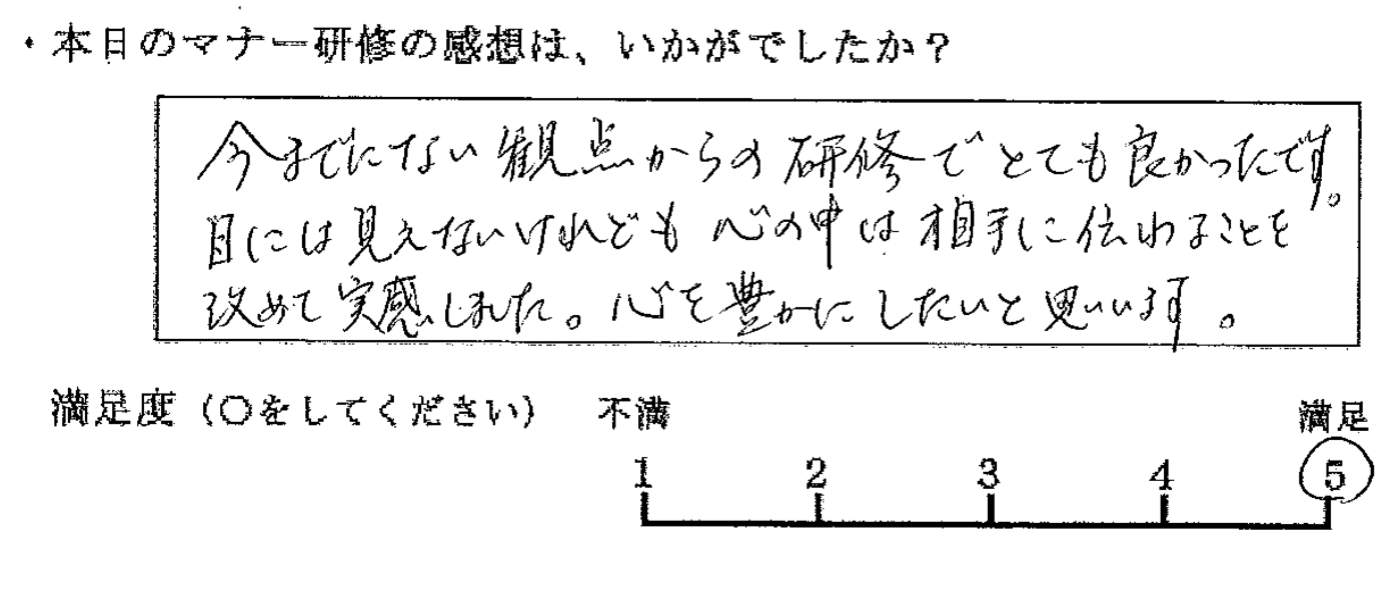 ・本日のマナー研修の感想は、いかがでしたか？
今までにない観点からの研修でとても良かったです。
目には見えないけれども心の中は相手に伝わることを
改めて実感しました。心を豊かにしたいと思います。
満足度（○をしてください） 不満 満足
1 2 3 4 5